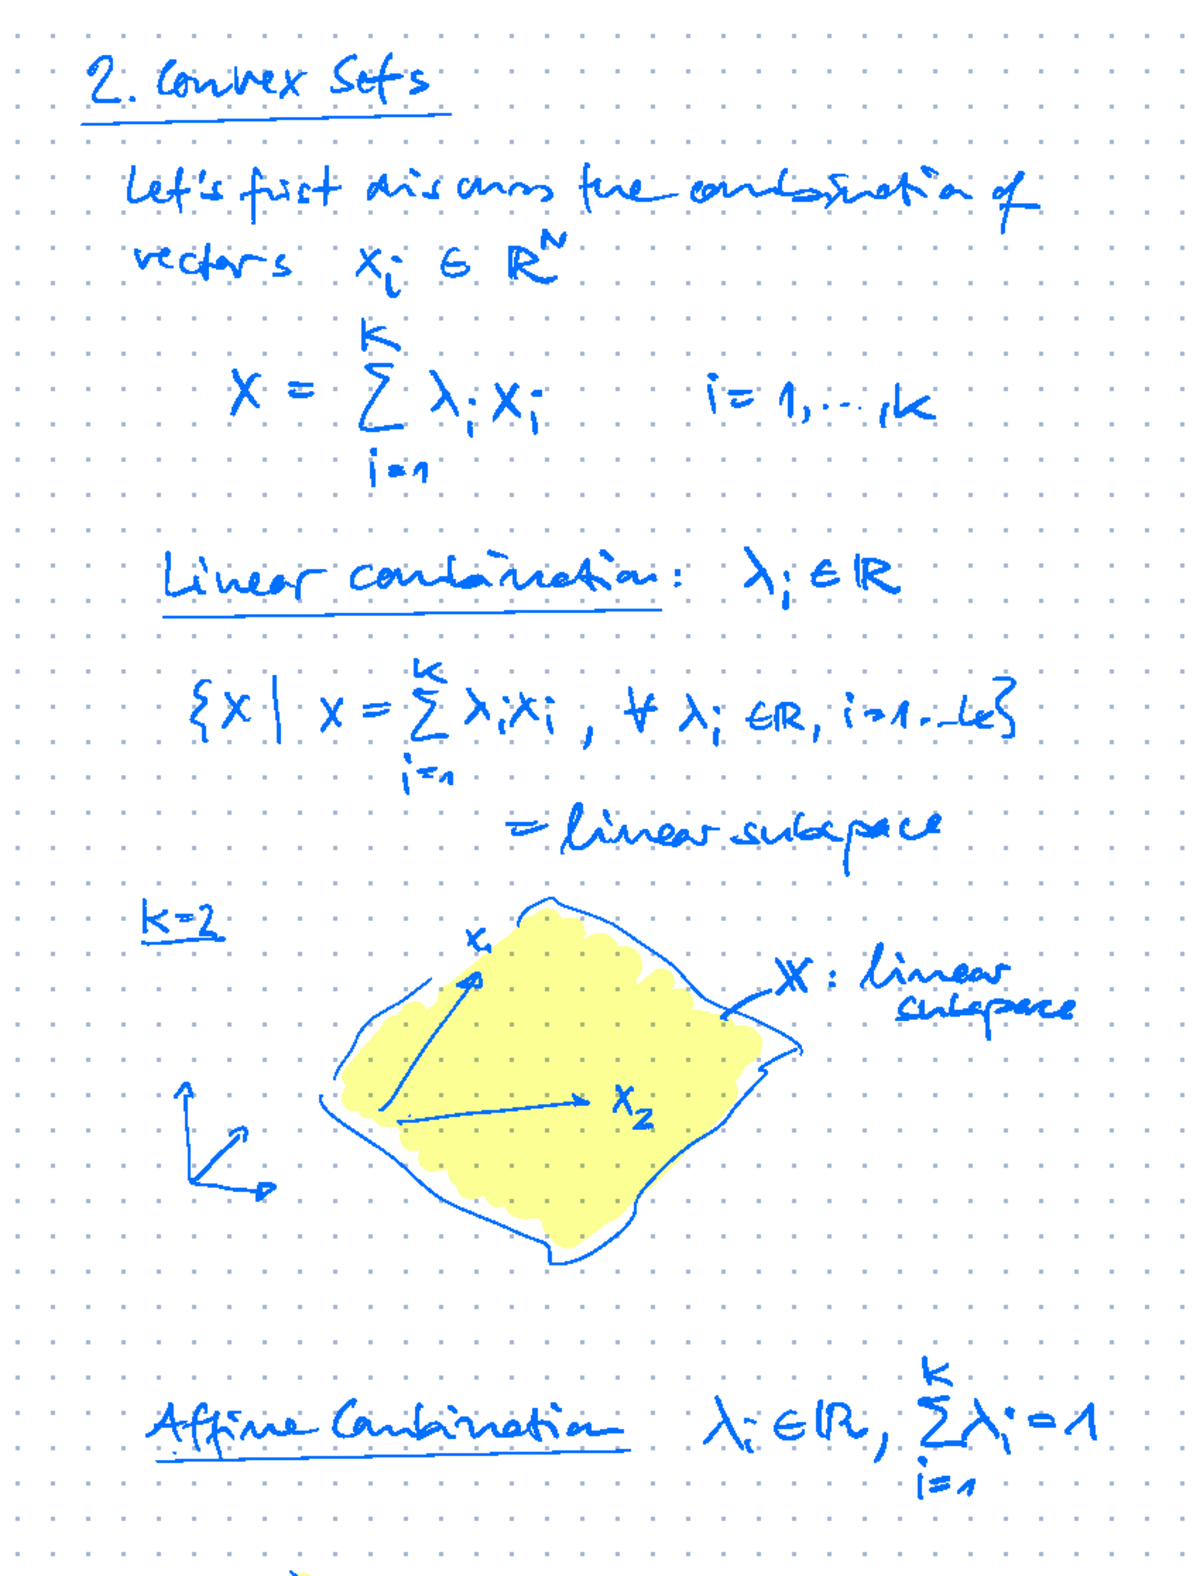 2. Convex Sets
Let's first discuss the combination of
vectors xᵢ ∈ ℝᴺ
X = ∑ᵢ₌₁ᴷ λᵢ xᵢ i = 1, ..., k
Linear combination: λᵢ ∈ ℝ
{x | x = ∑ᵢ₌₁ᴷ λᵢxᵢ, ∀ λᵢ ∈ ℝ, i=1...k}
= linear subspace
k=2
x₁
𝕏 : linear
subspace
x₂
Affine Combination λᵢ ∈ ℝ, ∑ᵢ₌₁ᴷ λᵢ = 1